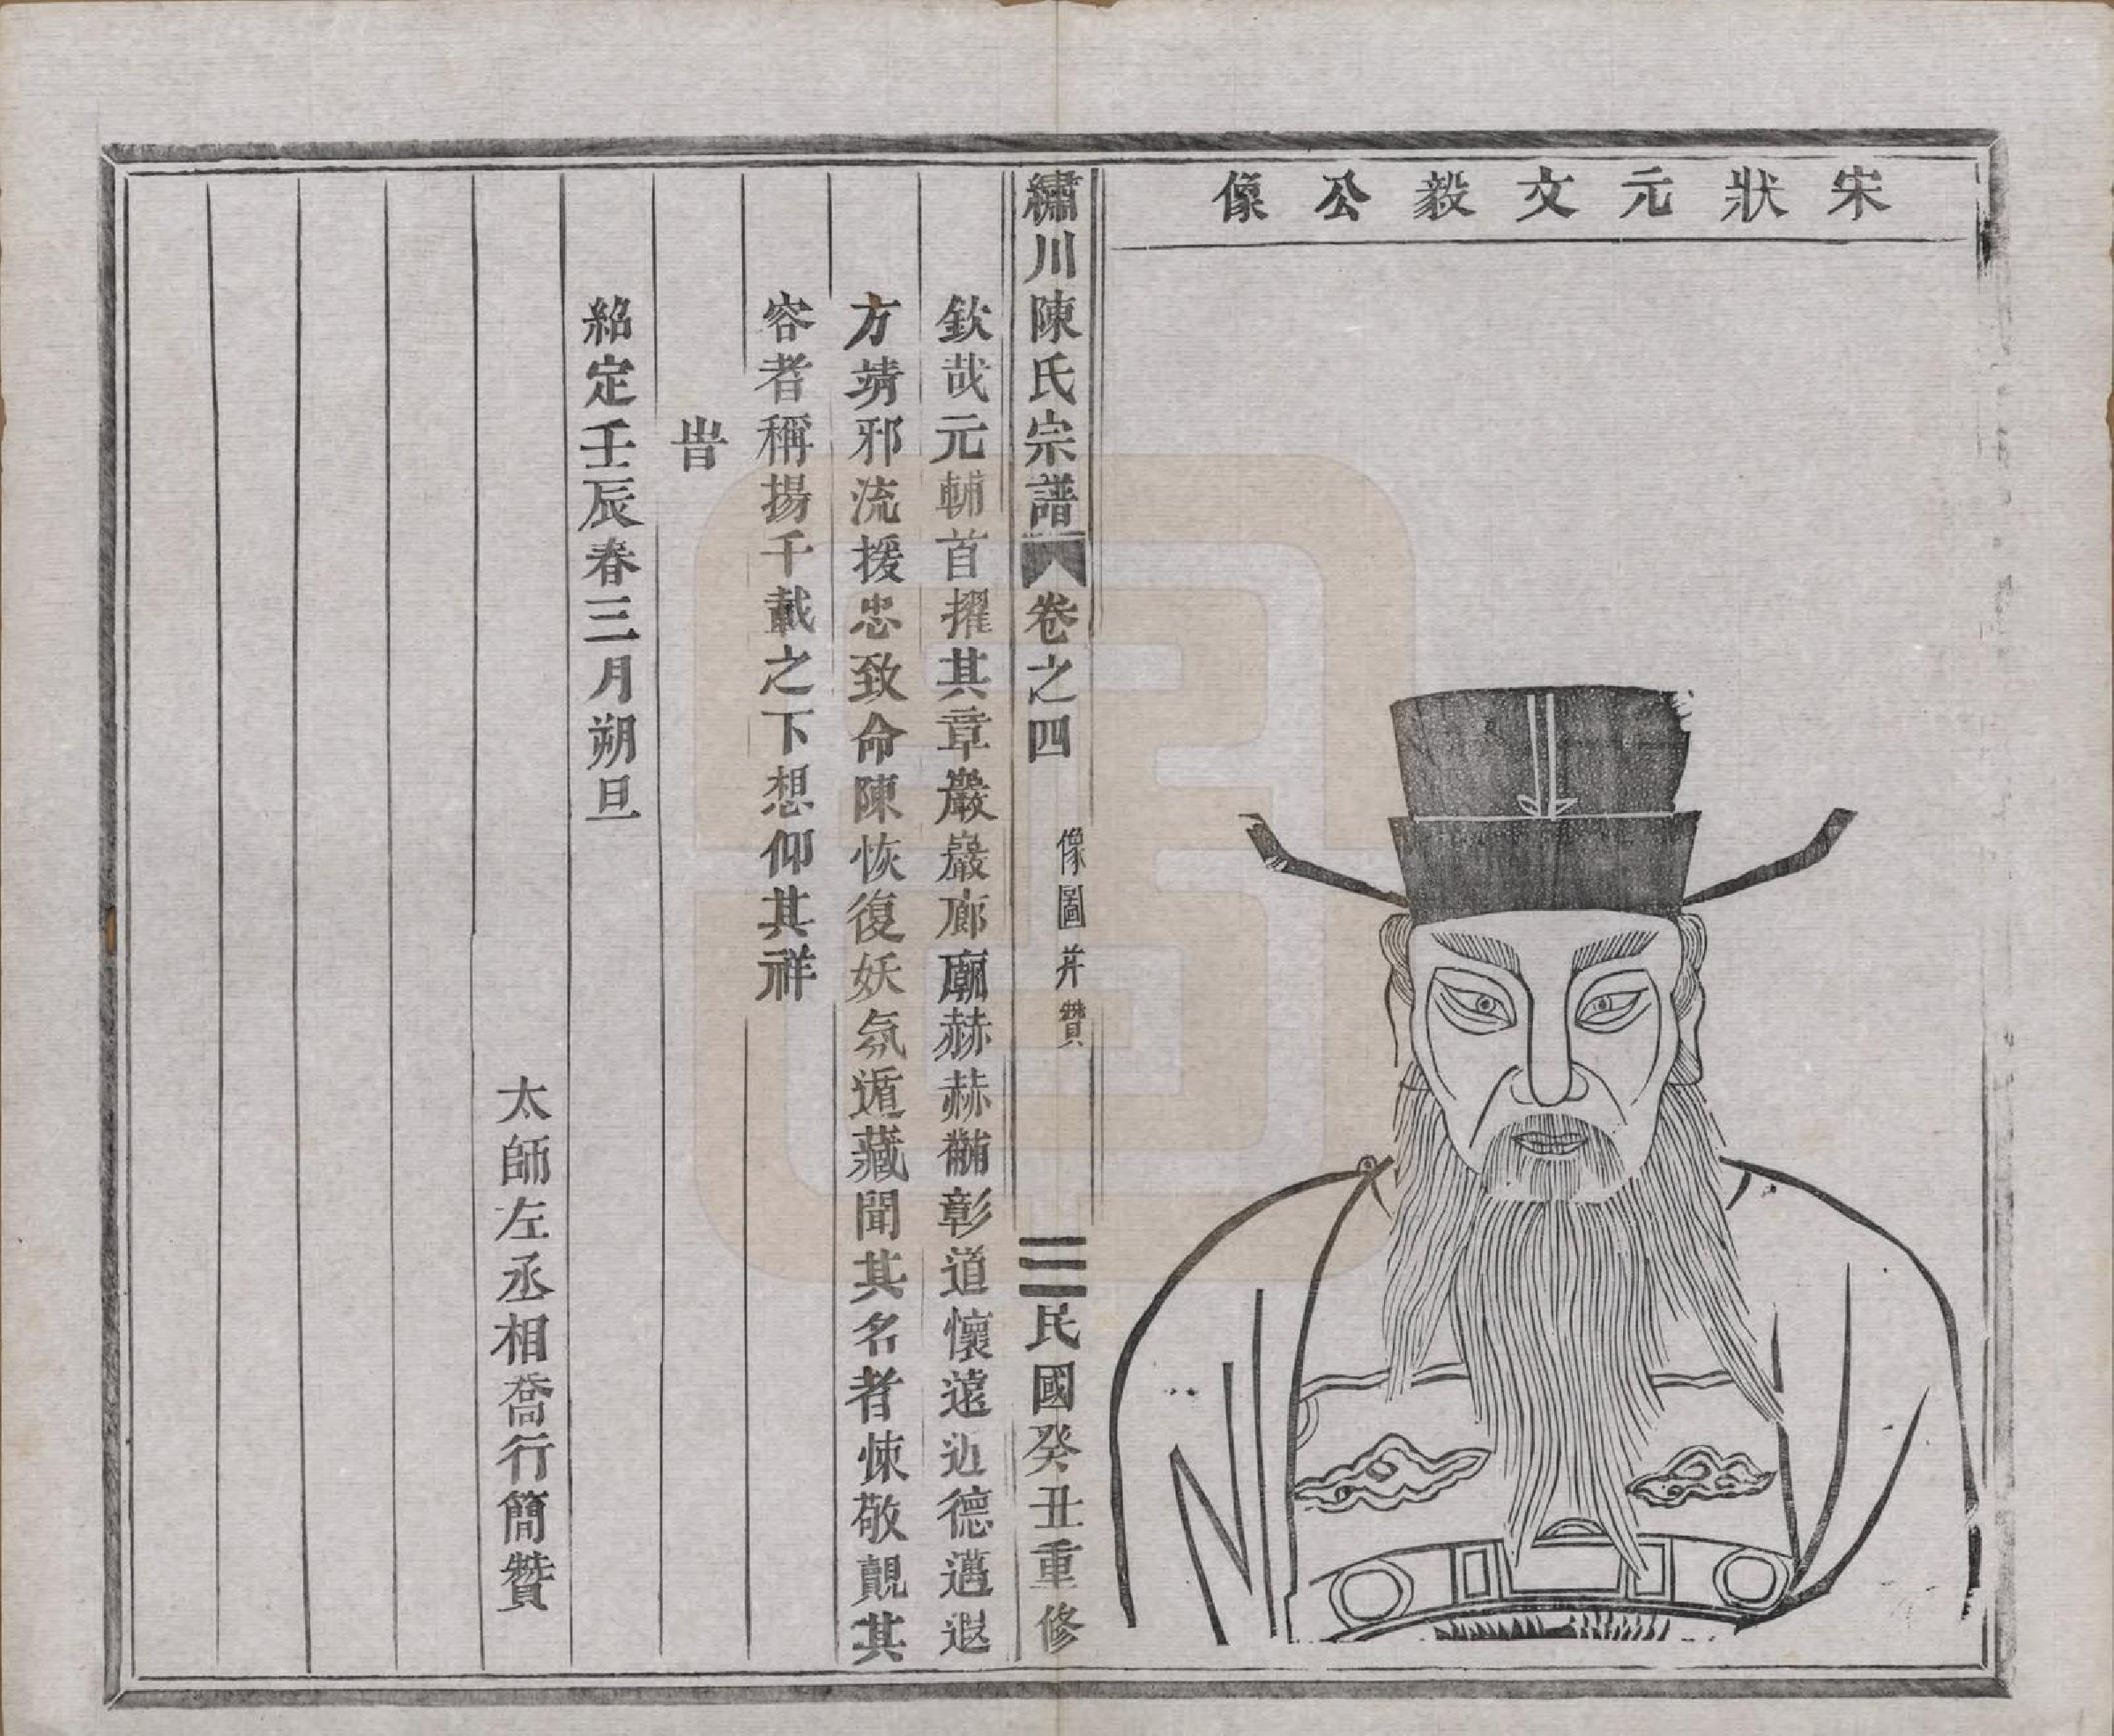 宋狀元文毅公像
繡川陳氏宗譜 卷之四 像圖并贊 三 民國癸丑重修
欽哉元輔首擢其章巖巖廊廟赫赫黼彰道懷遠迩德邁遐
方靖邪流援忠致命陳恢復妖氛遁藏聞其名者悚敬覿其
容者稱揚千載之下想仰其祥
旹
紹定壬辰春三月朔旦
太師左丞相喬行簡贊